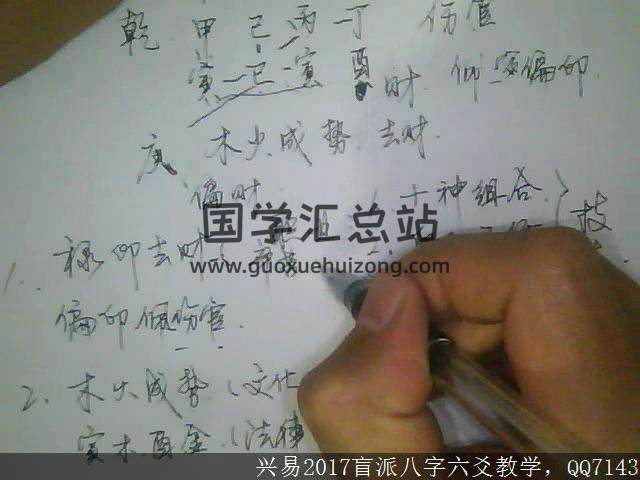 乾 甲 己 丙 丁 伤官
寅 巳 寅 酉 财 偏印
木火成势 去财
偏财 十神组合
国学汇总站
www.guoxuehuizong.com
1. 禄印去财 技
偏印 伤官
2. 木火成势 (文化
寅木酉金 (法律
兴易2017盲派八字六爻教学，QQ7143